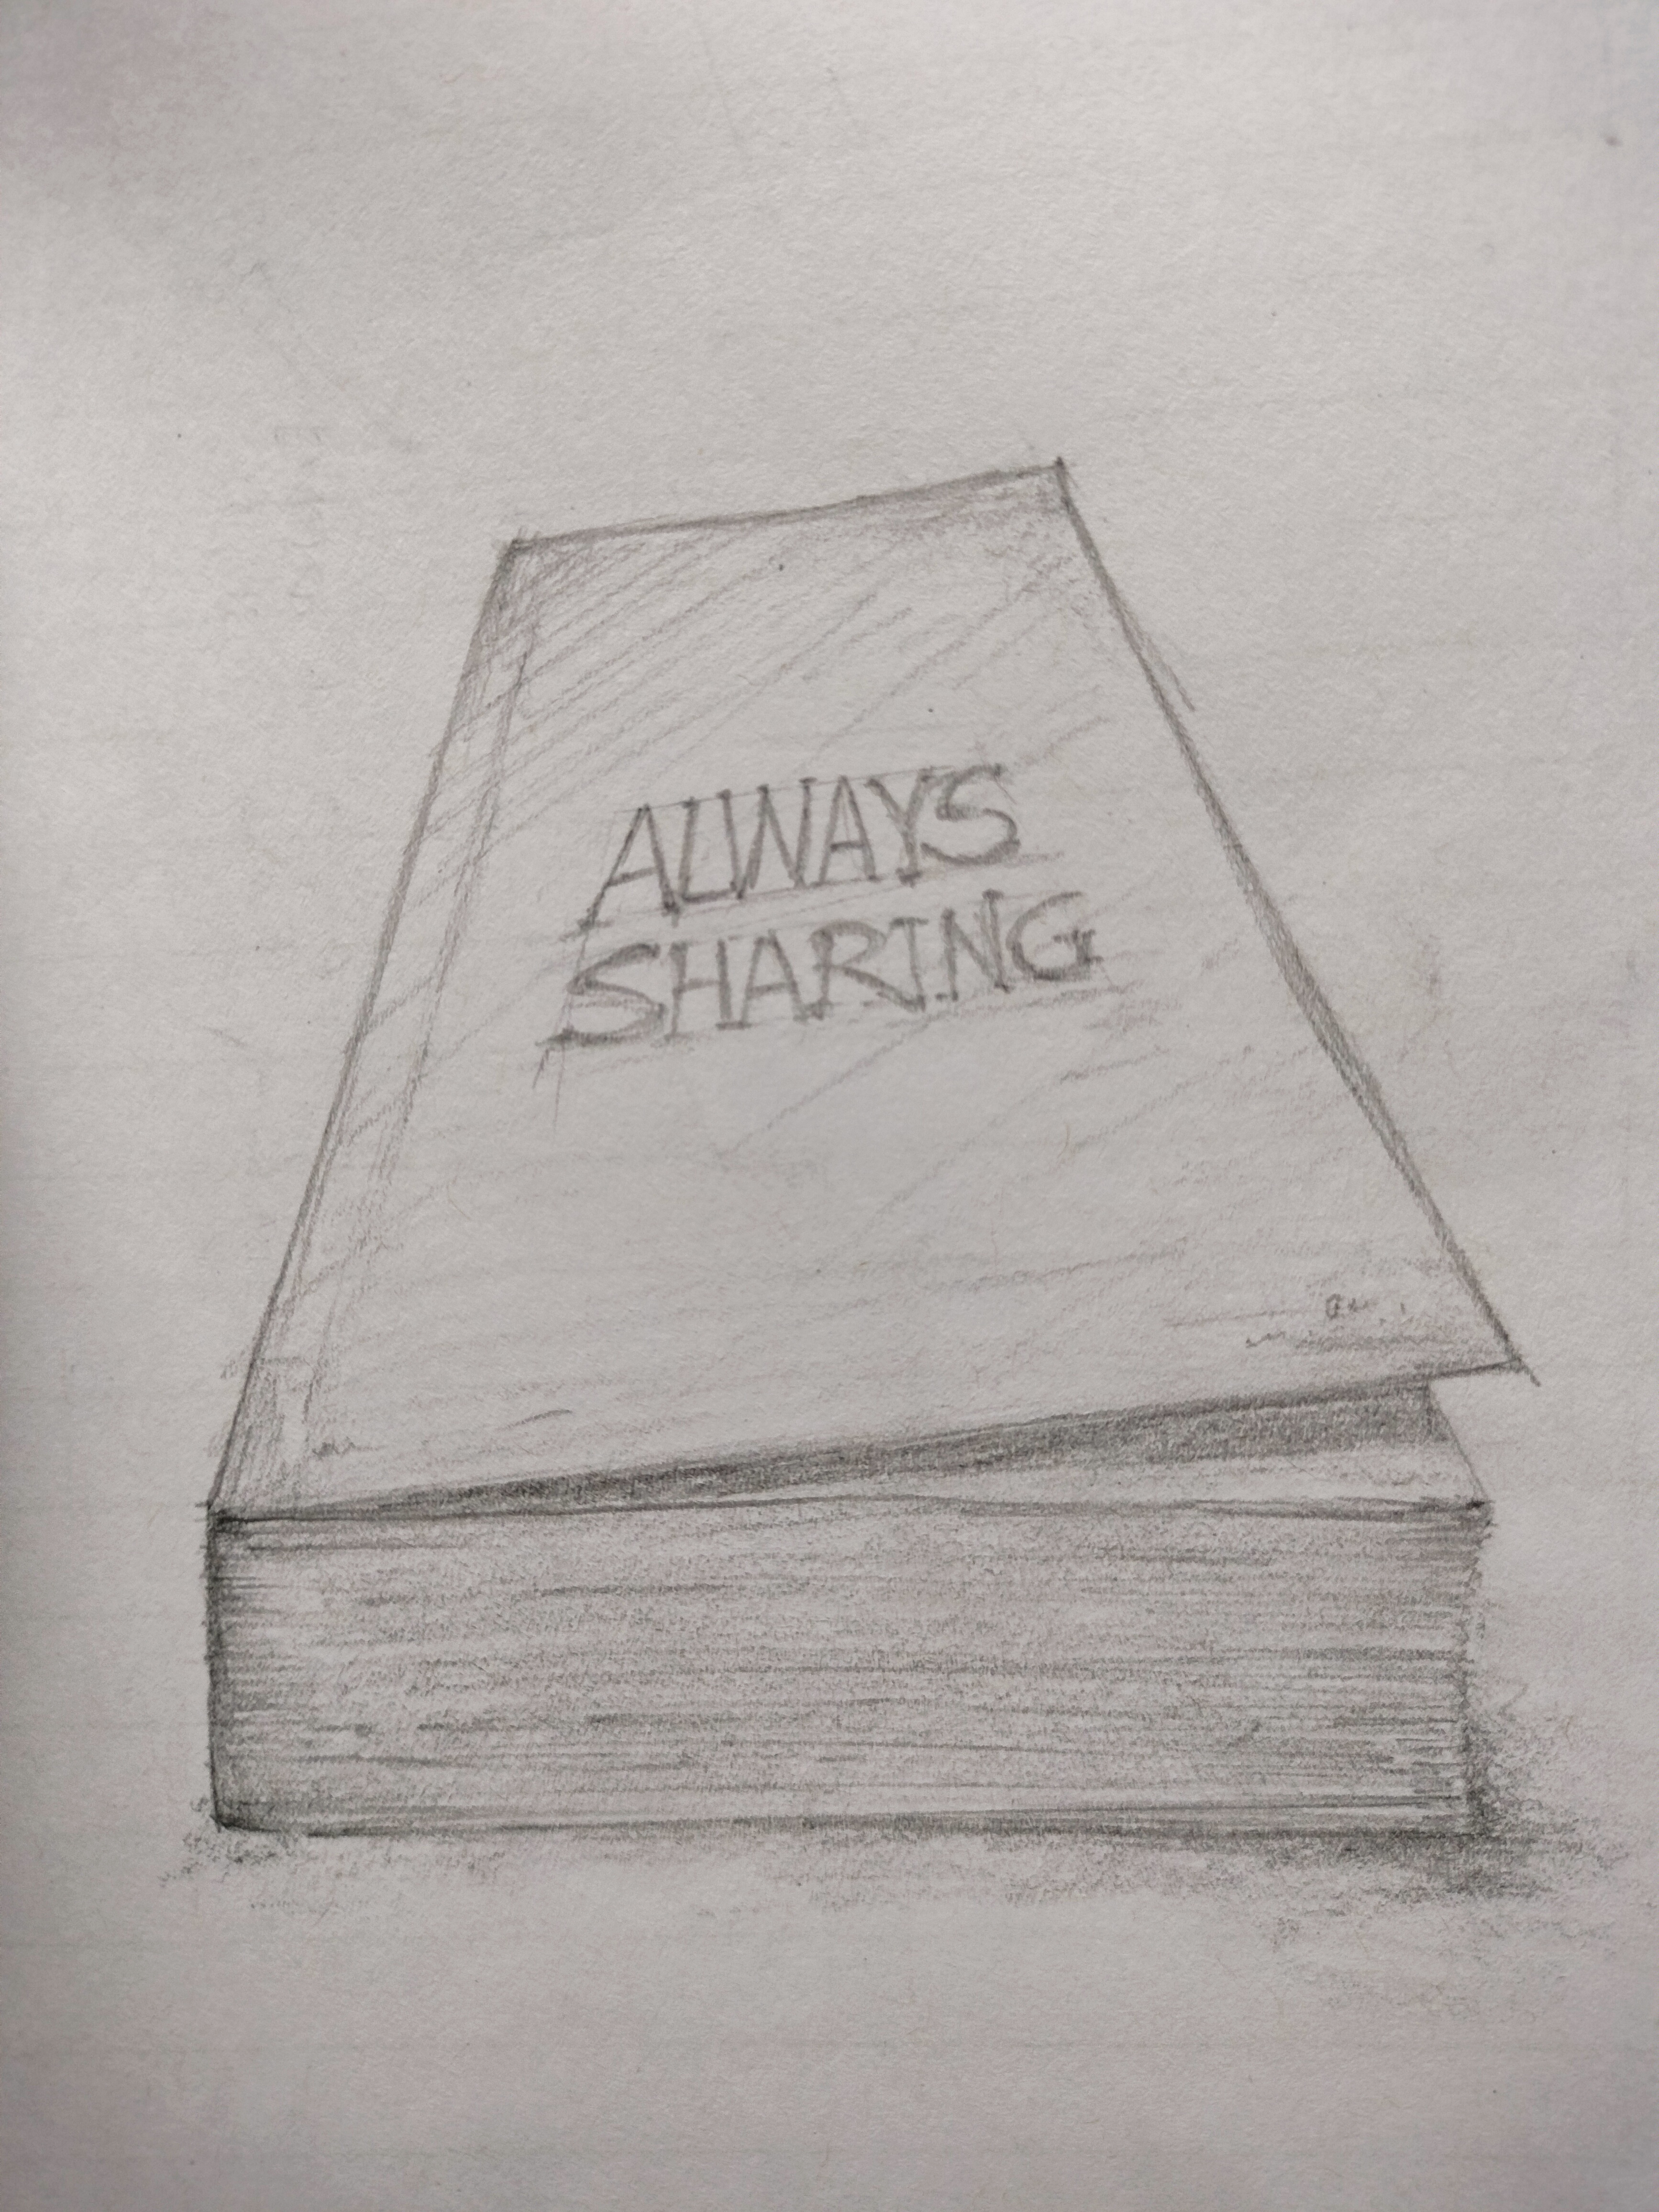 ALWAYS
SHARING